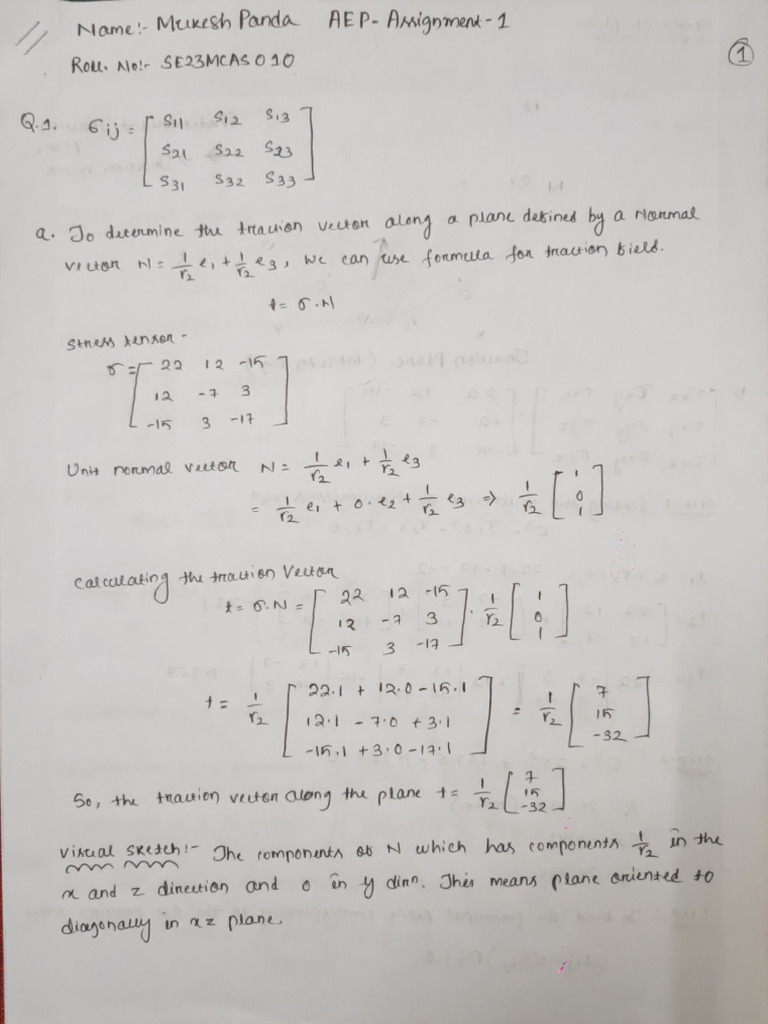 Name:- Mukesh Panda AEP- Assignment-1
Roll. No:- SE23MCAS010
1
Q.1. σij = [ S11 S12 S13
S21 S22 S23
S31 S32 S33 ]
a. To determine the traction vector along a plane defined by a Normal
vector N = 1/√2 e1 + 1/√2 e3, we can use formula for traction field.
t = σ.N
Stress tensor -
σ = [ 22 12 -15
12 -7 3
-15 3 -17 ]
Unit normal vector N = 1/√2 e1 + 1/√2 e3
= 1/√2 e1 + 0·e2 + 1/√2 e3 ⇒ 1/√2 [ 1 0 1 ]
Calculating the traction Vector
t = σ.N = [ 22 12 -15
12 -7 3
-15 3 -17 ] · 1/√2 [ 1 0 1 ]
t = 1/√2 [ 22.1 + 12.0 - 15.1
12.1 - 7.0 + 3.1
-15.1 + 3.0 - 17.1 ] = 1/√2 [ 7 15 -32 ]
So, the traction vector along the plane t = 1/√2 [ 7 15 -32 ]
Visual sketch:- The components of N which has components 1/√2 in the
x and z direction and 0 in y dirⁿ. This means plane oriented to
diagonally in xz plane.